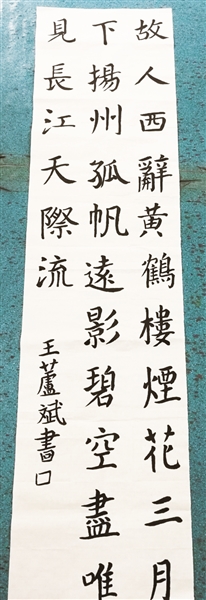 故人西辭黃鶴樓煙花三月
下揚州孤帆遠影碧空盡唯
見長江天際流
王蘆斌書口